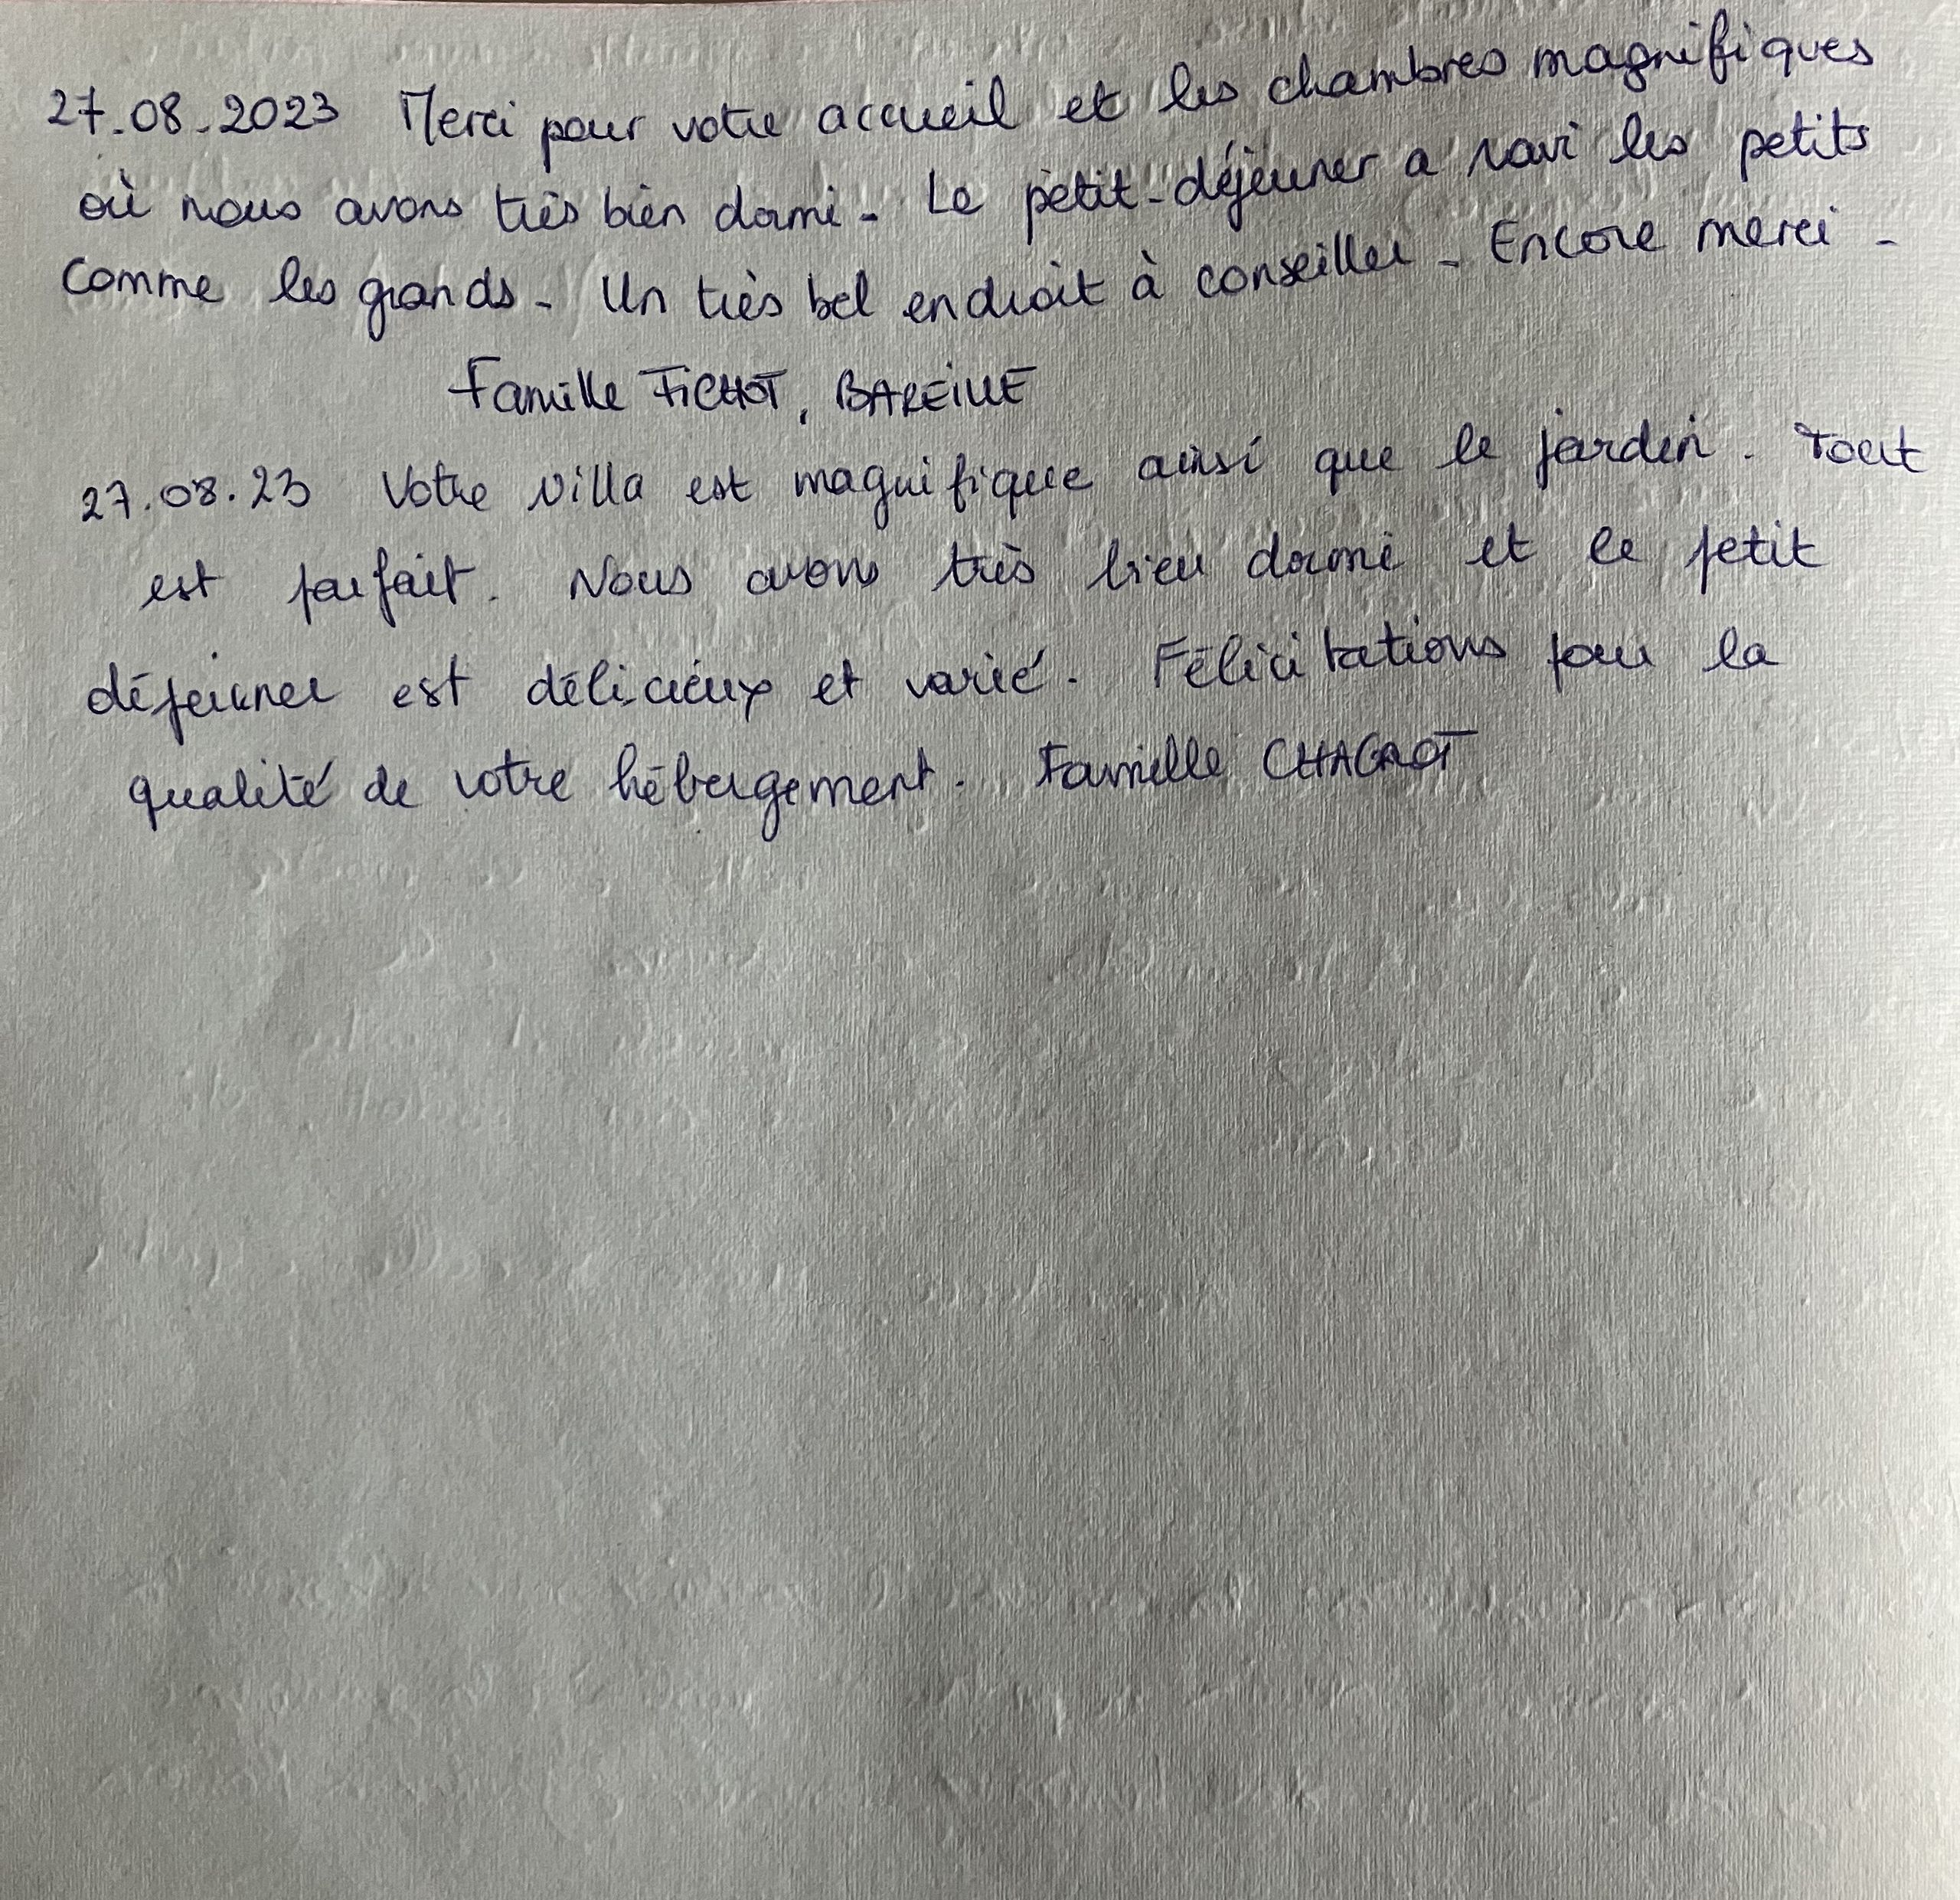 27.08.2023 Merci pour votre accueil et les chambres magnifiques
où nous avons très bien dormi. Le petit-déjeuner a ravi les petits
comme les grands. Un très bel endroit à conseiller. Encore merci.
Famille FICHOT, BAREILLE
27.08.23 Votre villa est magnifique ainsi que le jardin. Tout
est parfait. Nous avons très bien dormi et le petit
déjeuner est délicieux et varié. Félicitations pour la
qualité de votre hébergement. Famille CHAGROT